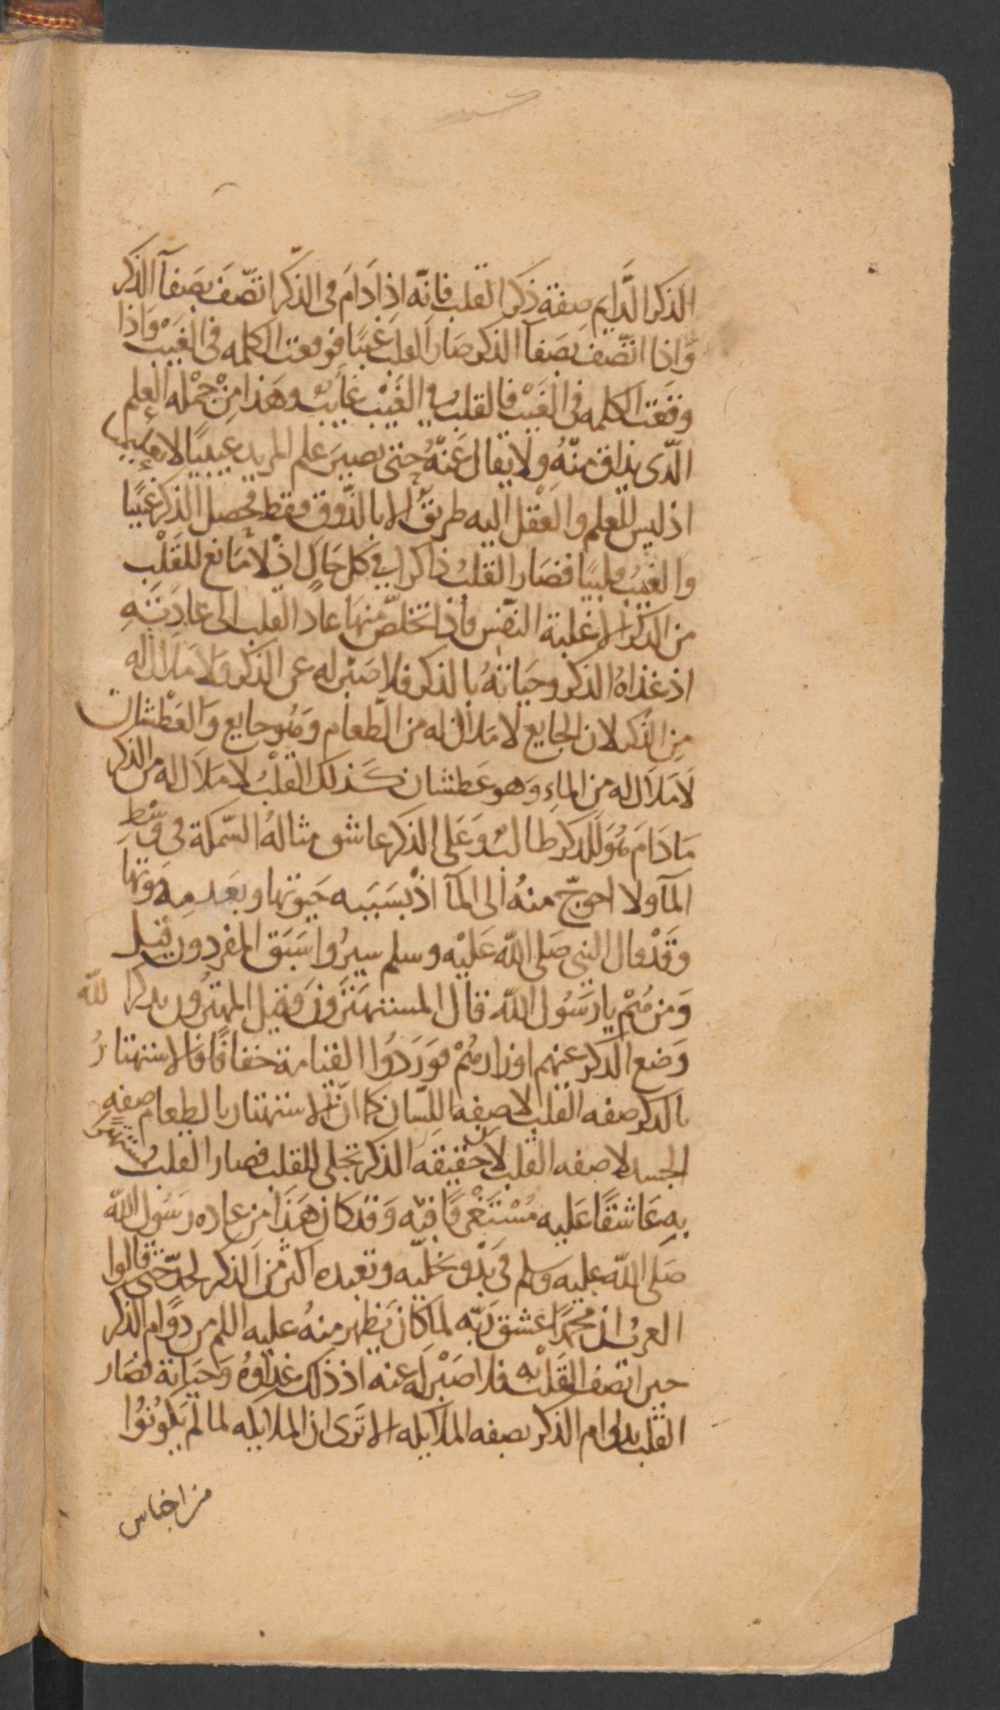 الذكر الدَّايم صِفة ذِكر القلب فانّه اِذا دَامَ فى الذكر اتّصَف بصَفآ الذكر
وَاذا اتّصف بصَفآ الذكر صَار القلب غيبًا فوقعت الكلمه فى الغَيْب وَاذا
وقعَت الكلمه فى الغَيْب فالقلبُ فى الغَيْب غايبٌ وهَذا مِنْ جمْله العِلم
الّذى يذاق منّهُ ولا يقال عَنّهُ حتى يصير علم المريد غيبيًا لا
اذ ليس للعلم والعَقْل اليه طريقٌ الا بالذَّوق فقط فيحصل الذكر غيبًا
والغَيْبُ قلبيًا فصَار القلبُ ذاكرا فى كل حَالٍ اذ لا مَانع للقَلْب
من الذكر الا غلبة النفس فاذا تخلصّ منهَا عاد القلب الى عادتهِ
اذ غذاهُ الذكر وحَياتهُ بالذكر فلا صَبْر له عن الذكر وَلا مَلاَل له
مِن الذكر لان الجايع لا مَلاَل له من الطعام وَهُو جايع وَالعَطْشان
لاَ مَلاَل له من الماءِ وَهو عَطشان كذلك القَلْبُ لا مَلاَل له من الذكر
مَا دَامَ هُوَ للذكر طالبٌ وَعَلى الذكر عاشق مثاله السّمكة فى وَسْطِ
المآ ولا احوجّ منهُ الى المآ اذْ بسَبَبه حَيوتها وبعَدمِه مَوتها
وقَدْ قال النبى صَلى اللّه عَليْه وسلم سيرُوا سَبَق المفردون قيْل
وَمن هُمْ يا رَسُول اللّه قال المستهتَرُونَ وقيل المهتزُون بذكر اللّه
وَضع الذكر عنهم اوزارهُمْ فوَرَدُوا القيامة خفافًا فالاستهتارُ
بالذكر صفه القلب لا صفه اللِسَان كما انّ الاستهتار بالطعام صفه
الجسد لا صفه القلب لانّ حقيقه الذكر تجلى للقلب فصار القلبُ مستهتر
بهِ عَاشقًا عَليه مُسْتَغْرقًا فيّه وَقد كان هَذا من عاده رَسُول اللّه
صَلى اللّه عليه وسلم فى بَدْو تخليّه وتعبده اكثر من الذكر لحدّ حَتى قالوا
العربُ ان محمّدًا عشق ربّه لما كان يَظهر منهُ عليه السلم من دوَام الذكر
حين اتصف القَلْب به فلا صَبْر لَه عنه اذ ذلك غذاؤهُ وَحَيَاته فصَار
القلب بدوام الذكر بصفه الملايكه الا ترَى ان الملايكه لما لم يَلوثوُا
من اجناس